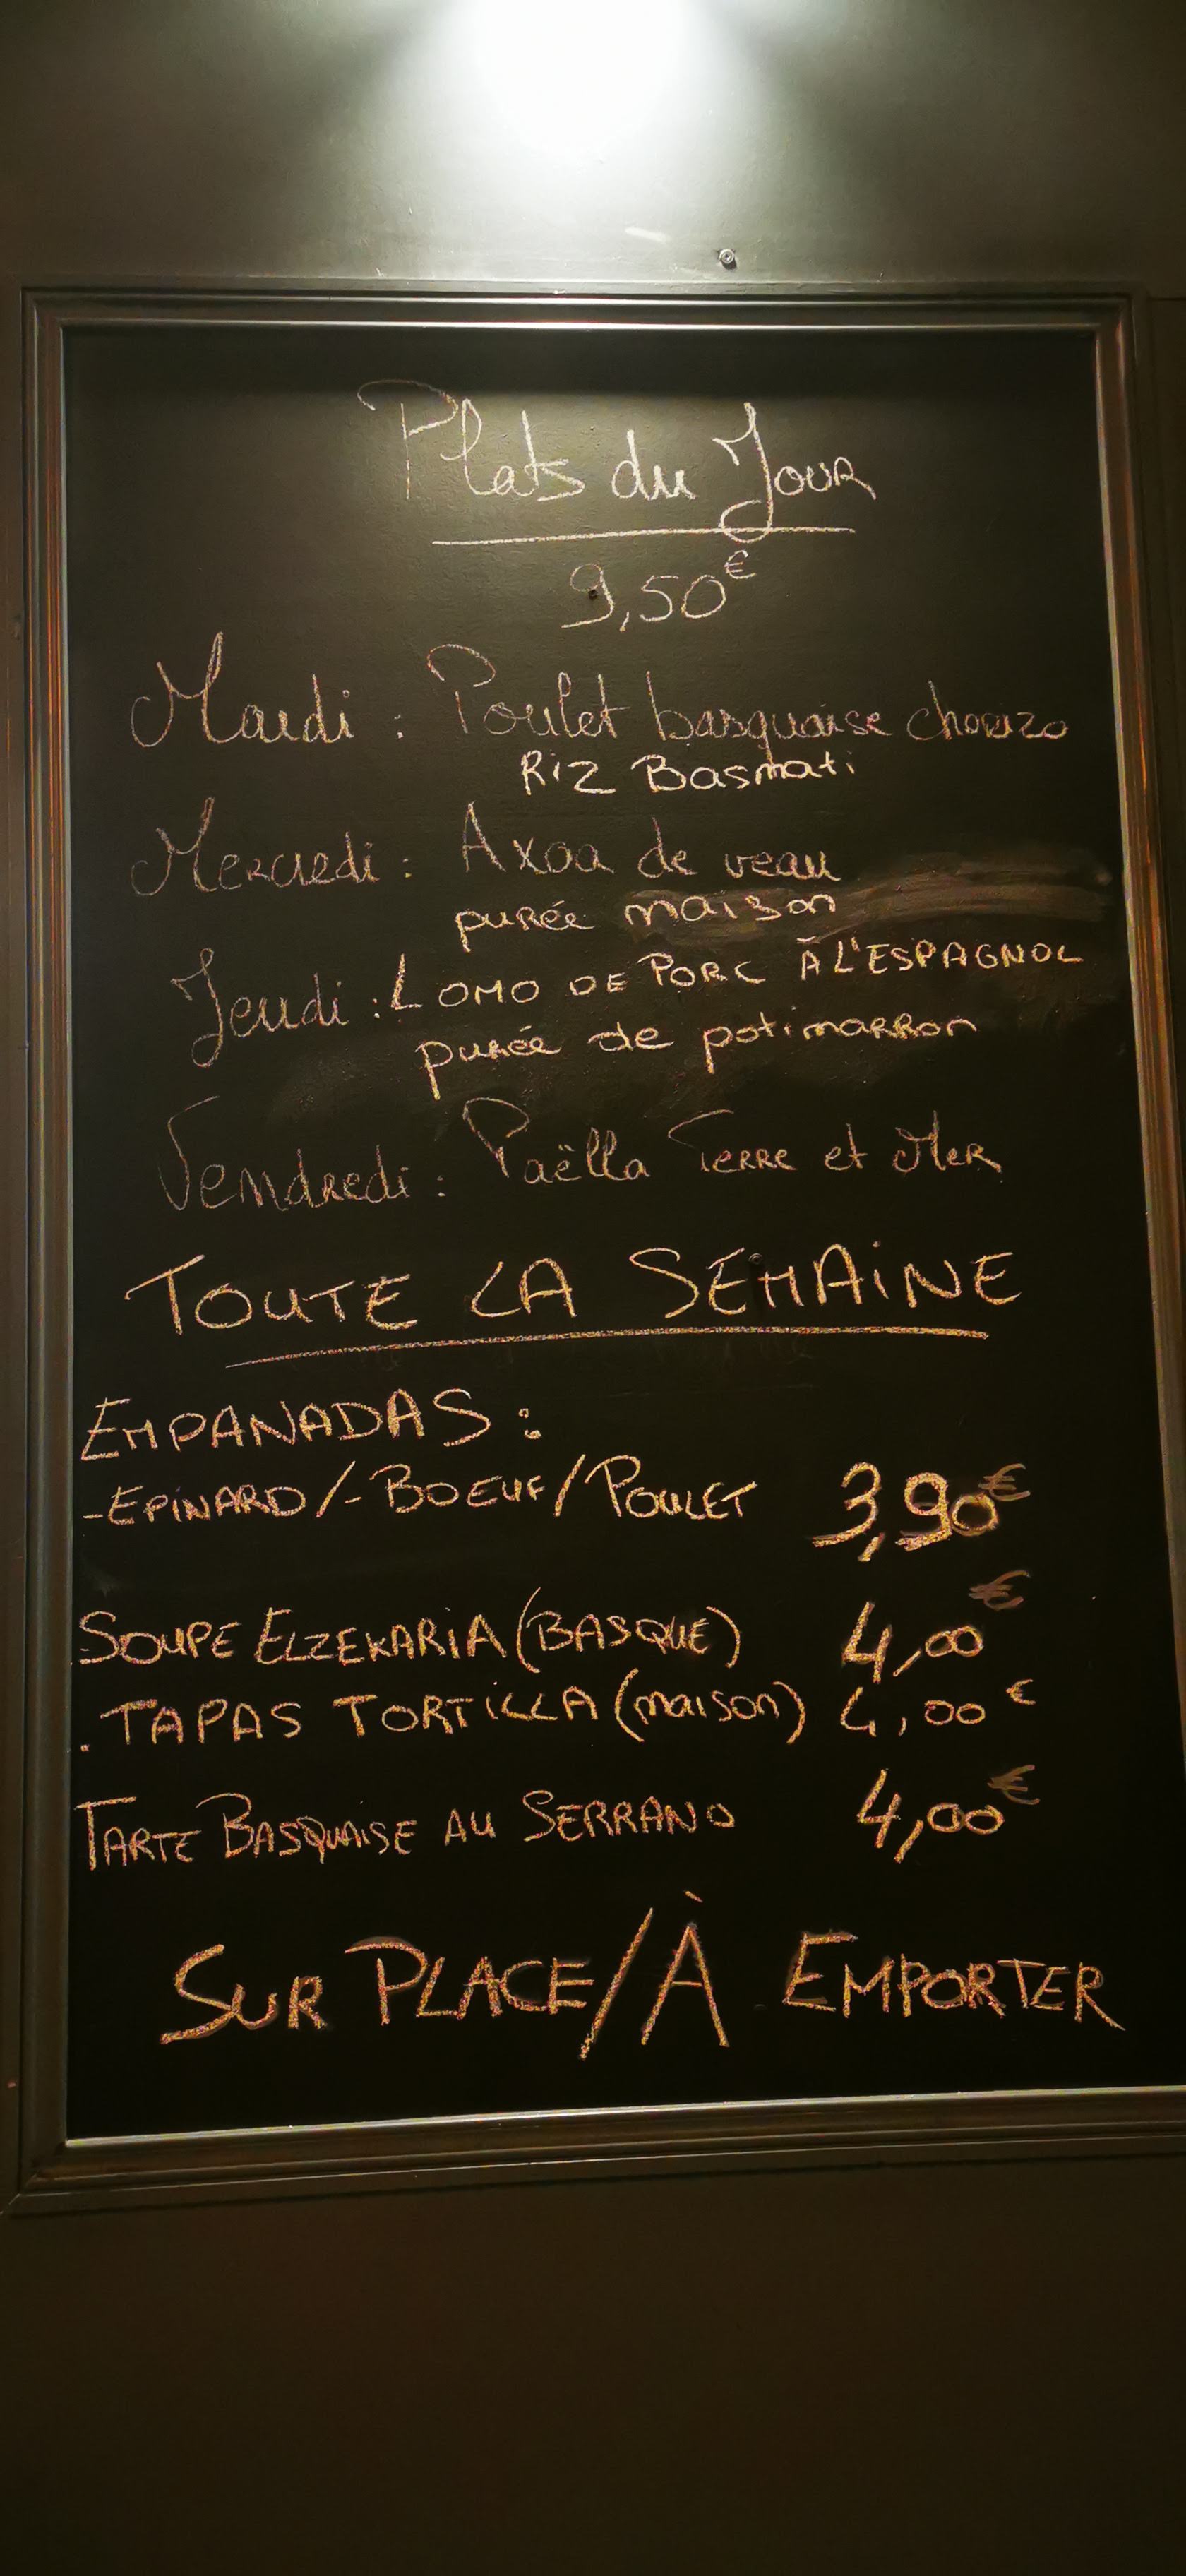 Plats du Jour
9,50€
Mardi : Poulet basquaise chorizo
Riz Basmati
Mercredi : Axoa de veau
purée maison
Jeudi : LOMO DE PORC À L'ESPAGNOL
purée de potimarron
Vendredi : Paëlla Terre et Mer
TOUTE LA SEMAINE
EMPANADAS :
-EPINARD/-BOEUF/POULET 3,90€
SOUPE ELZEKARIA (BASQUE) 4,00€
. TAPAS TORTILLA (maison) 4,00€
TARTE BASQUAISE AU SERRANO 4,00€
SUR PLACE/À EMPORTER